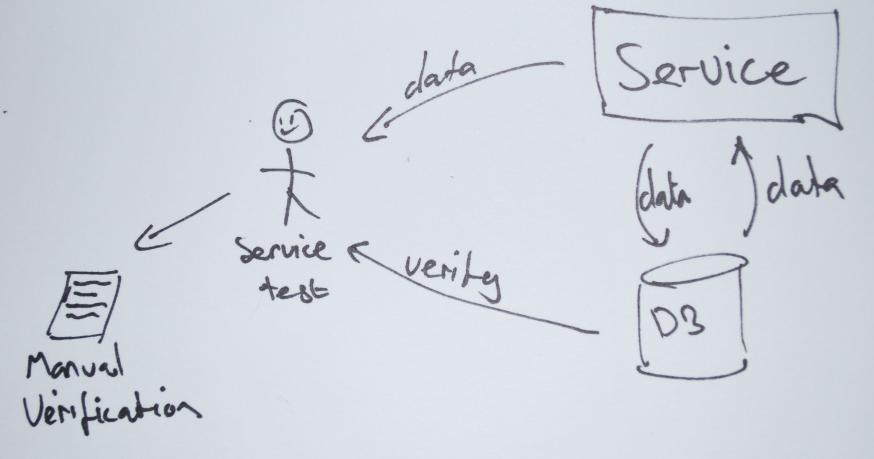 data
Service
data
data
Service
test
verify
DB
Manual
Verification